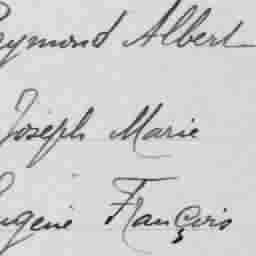 Raymond Albert
Joseph Marie
Eugène François